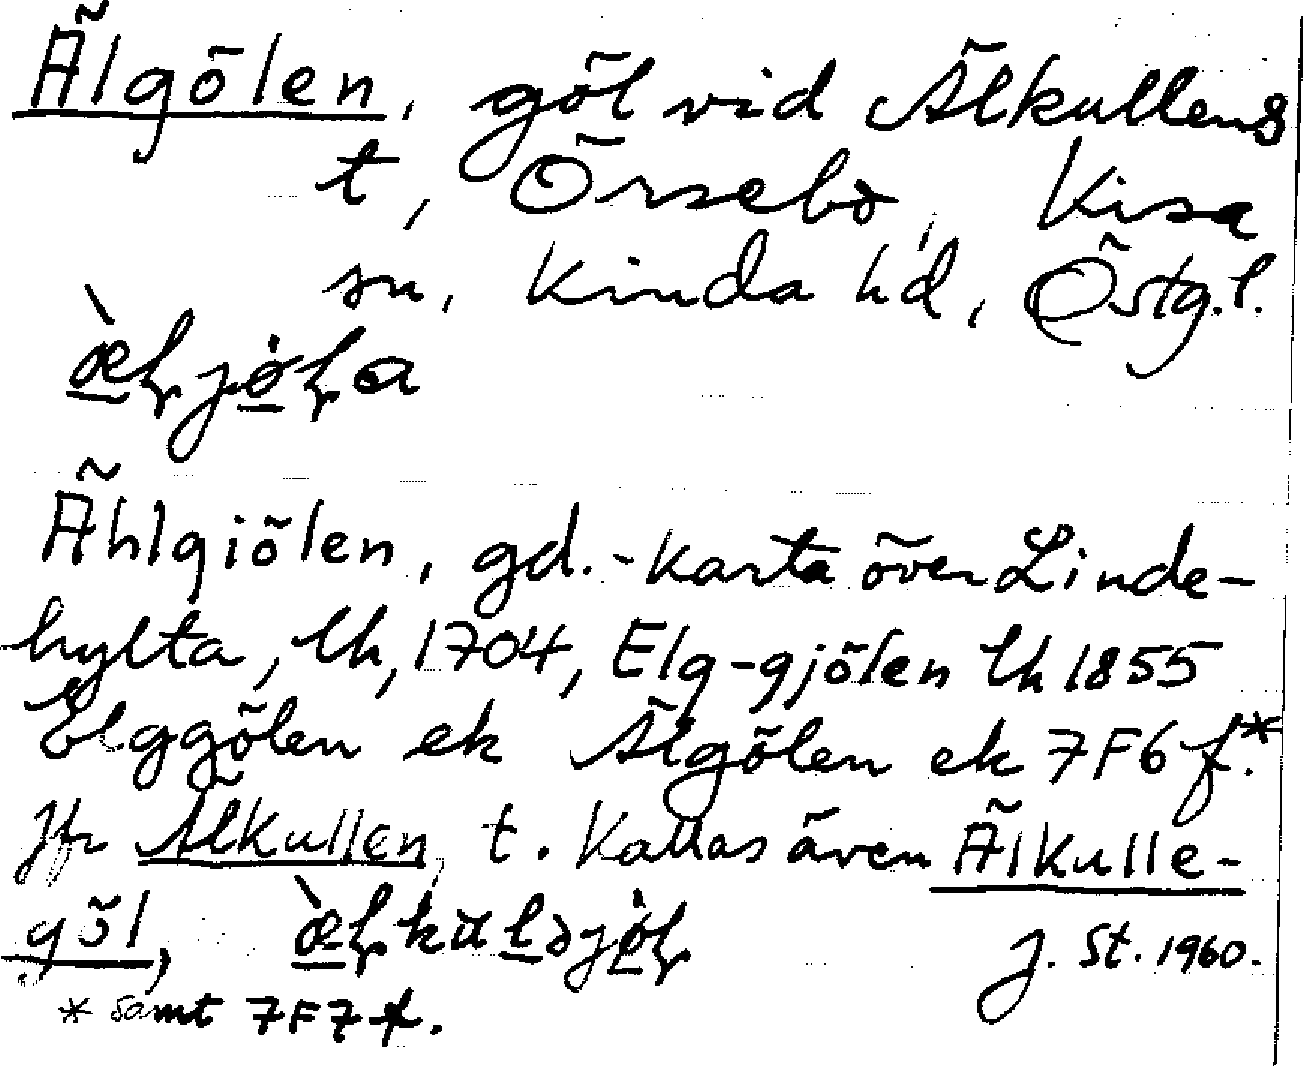 Älgölen, göl vid Älkullens
t, Örsebo, Kisa
sn, Kinda hd, Östg.l.
Ählgiölen, gd.-karta över Linde-
hylta, lh, 1704, Elg-gjölen lh 1855
Elggölen ek Älgölen ek 7F6f.*
Jfr Älkullen, t. Kallas även Älkulle-
göl,
J. St. 1960.
* samt 7F7f.